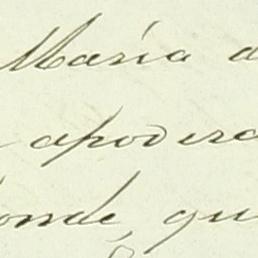 María
apodera
donde, qu